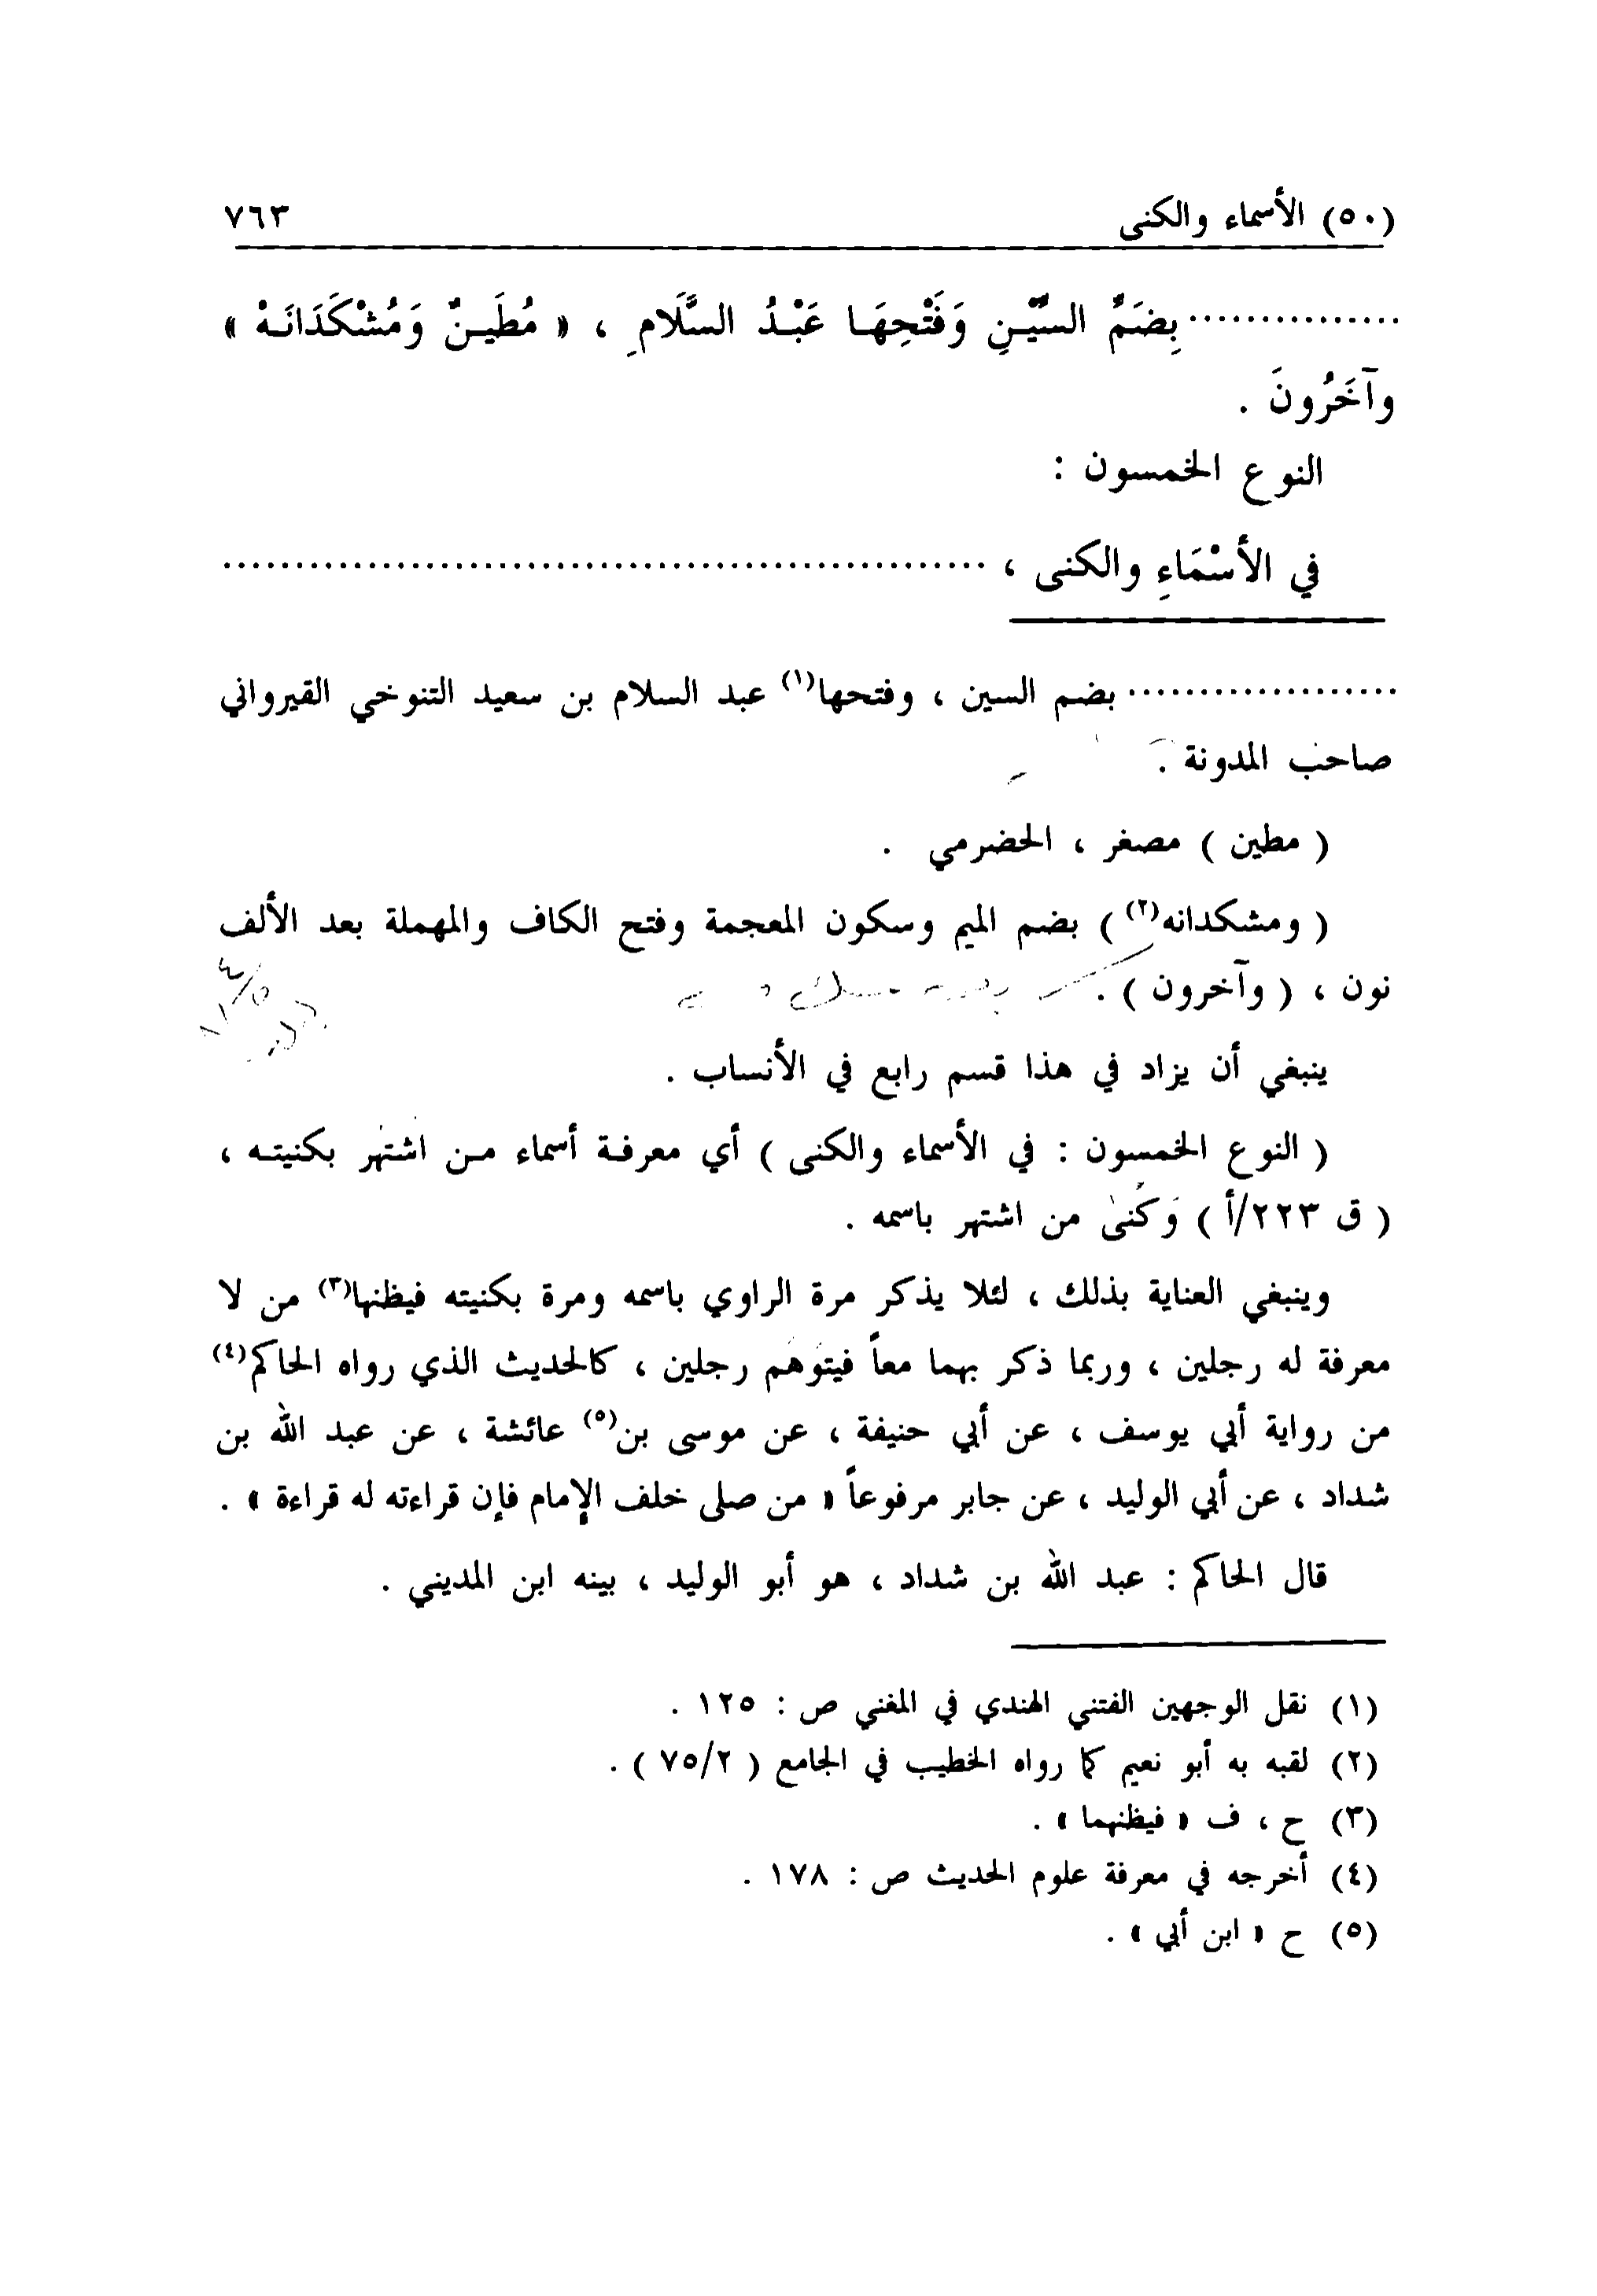 (٥٠) الأسماء والكنى ٧٦٣
............... بِضَمِّ السِّيْنِ وَفَتْحِهَا عَبْدُ السَّلَامِ ، « مُطَينٌ وَمُشْكَدَانَهْ »
وآخَرُونَ .
النوع الخمسون :
في الأسْمَاءِ والكنى ، ......................................................
................... بضم السين ، وفتحها(١) عبد السلام بن سعيد التنوخي القيرواني
صاحب المدونة .
( مطين ) مصغر ، الحضرمي .
( ومشكدانه(٢) ) بضم الميم وسكون المعجمة وفتح الكاف والمهملة بعد الألف
نون ، ( وآخرون ) .
ينبغي أن يزاد في هذا قسم رابع في الأنساب .
( النوع الخمسون : في الأسماء والكنى ) أي معرفة أسماء من اشتهر بكنيته ،
( ق ٢٢٣/أ ) وَكُنىٰ من اشتهر باسمه .
وينبغي العناية بذلك ، لئلا يذكر مرة الراوي باسمه ومرة بكنيته فيظنها(٣) من لا
معرفة له رجلين ، وربما ذكر بهما معاً فيتوهم رجلين ، كالحديث الذي رواه الحاكم(٤)
من رواية أبي يوسف ، عن أبي حنيفة ، عن موسى بن(٥) عائشة ، عن عبد الله بن
شداد ، عن أبي الوليد ، عن جابر مرفوعاً « من صلى خلف الإمام فإن قراءته له قراءة » .
قال الحاكم : عبد الله بن شداد ، هو أبو الوليد ، بينه ابن المديني .
(١) نقل الوجهين الفتني الهندي في المغني ص : ١٢٥ .
(٢) لقبه به أبو نعيم كما رواه الخطيب في الجامع ( ٧٥/٢ ) .
(٣) ح ، ف « فيظنهما » .
(٤) أخرجه في معرفة علوم الحديث ص : ١٧٨ .
(٥) ح « ابن أبي » .